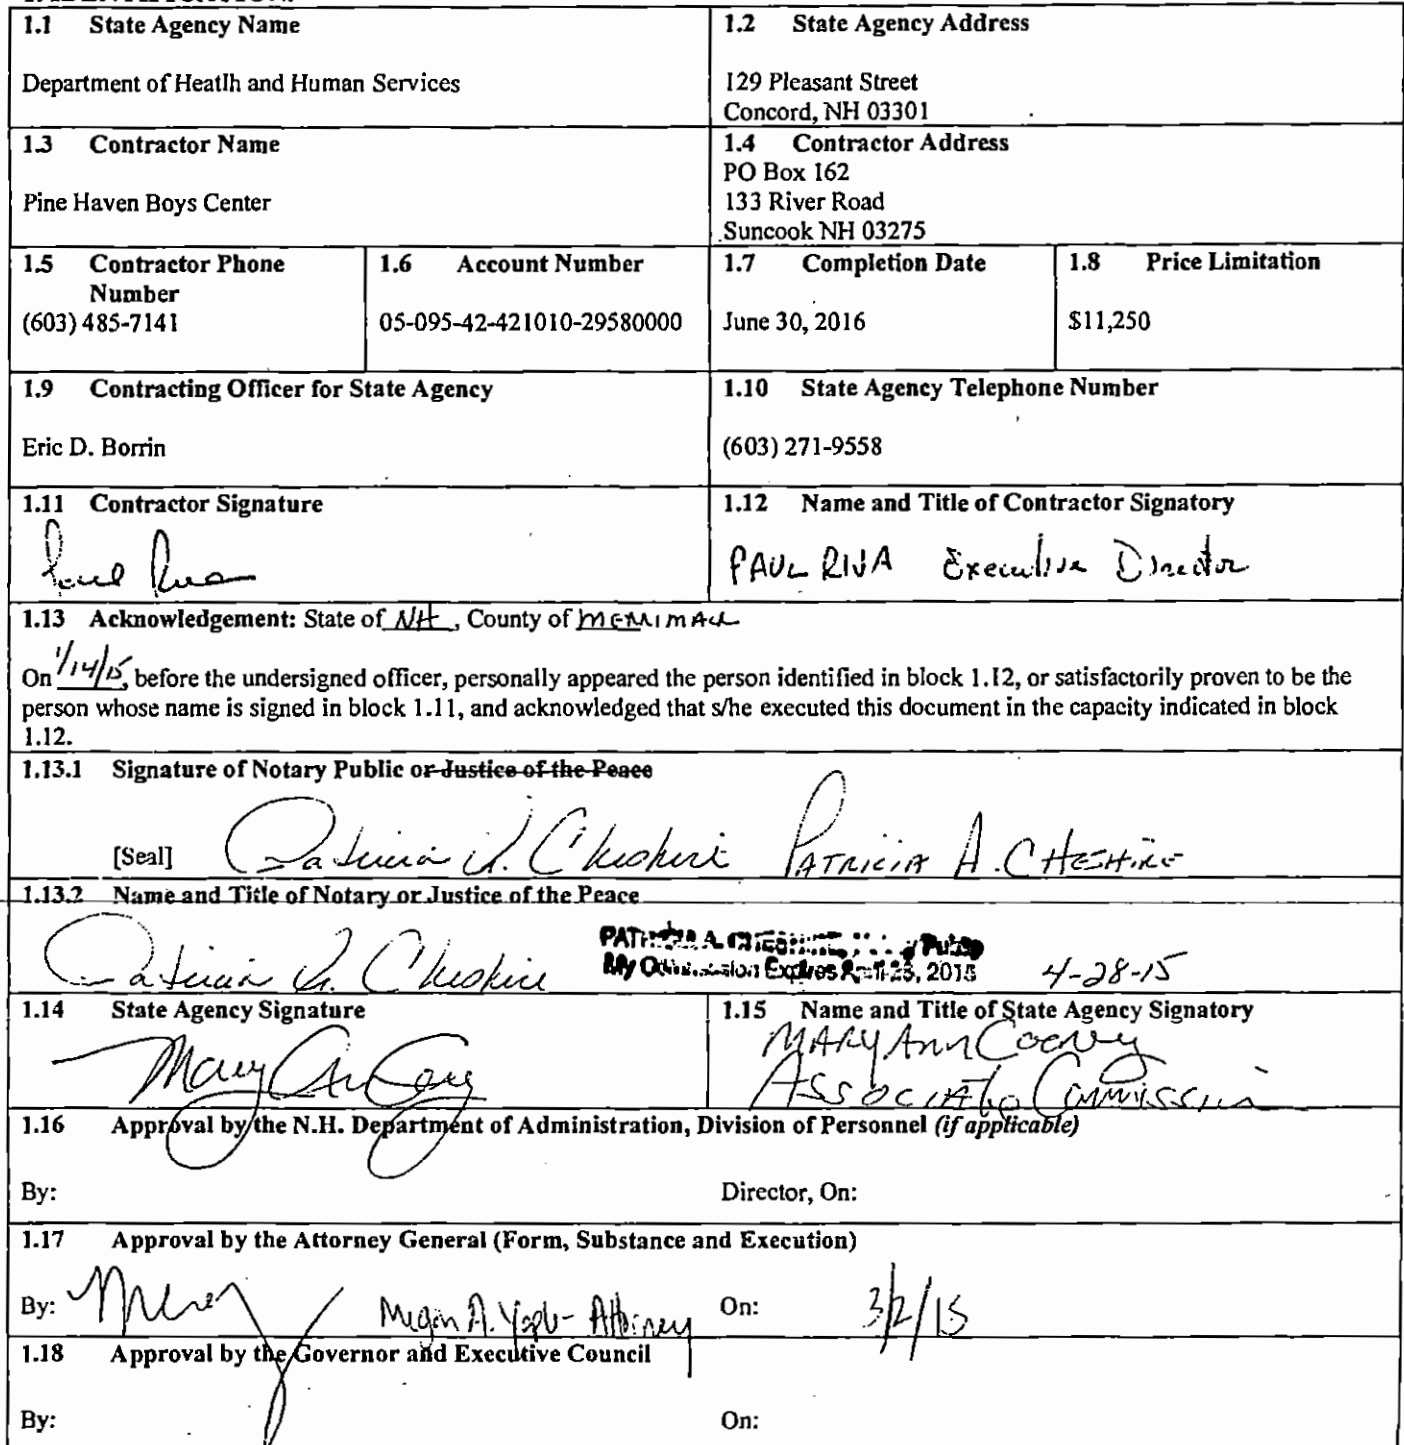 1.1 State Agency Name
Department of Heatlh and Human Services
1.2 State Agency Address
129 Pleasant Street
Concord, NH 03301
1.3 Contractor Name
Pine Haven Boys Center
1.4 Contractor Address
PO Box 162
133 River Road
Suncook NH 03275
1.5 Contractor Phone
Number
(603) 485-7141
1.6 Account Number
05-095-42-421010-29580000
1.7 Completion Date
June 30, 2016
1.8 Price Limitation
$11,250
1.9 Contracting Officer for State Agency
Eric D. Borrin
1.10 State Agency Telephone Number
(603) 271-9558
1.11 Contractor Signature
1.12 Name and Title of Contractor Signatory
PAUL RIVA Executive Director
1.13 Acknowledgement: State of NH, County of
On 1/14/15, before the undersigned officer, personally appeared the person identified in block 1.12, or satisfactorily proven to be the
person whose name is signed in block 1.11, and acknowledged that s/he executed this document in the capacity indicated in block
1.12.
1.13.1 Signature of Notary Public or Justice of the Peace
[Seal] Patricia A. Cheshire PATRICIA A. CHESHIRE
1.13.2 Name and Title of Notary or Justice of the Peace
Patricia A. Cheshire
My Commission Expires April 28, 2015
4-28-15
1.14 State Agency Signature
1.15 Name and Title of State Agency Signatory
Mary Ann Cooney
Associate Commissioner
1.16 Approval by the N.H. Department of Administration, Division of Personnel (if applicable)
By: Director, On:
1.17 Approval by the Attorney General (Form, Substance and Execution)
By: Megan A. Attorney On: 3/2/15
1.18 Approval by the Governor and Executive Council
By: On: